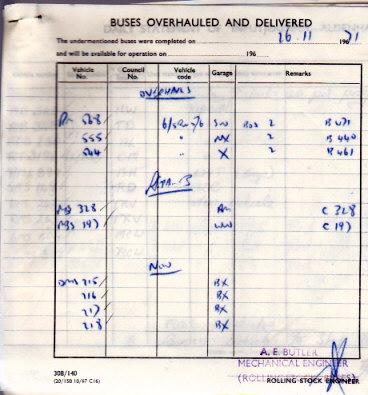 BUSES OVERHAULED AND DELIVERED
The undermentioned buses were completed on 26.11 1961 71
and will be available for operation on 196
Vehicle No. Council No. Vehicle code Garage Remarks
OVERHAULS
RM 528 6/5RM7/6 SW BOD 2 B 471
555 " NX 2 B 440
544 " X 2 B 461
MB 328 C 328
MBS 197 WW C 197
NEW
DMS 215 BX
216 BX
217 BX
218 BX
A. E. BUTLER
MECHANICAL ENGINEER
(ROLLING STOCK BUSES)
ROLLING STOCK ENGINEER
308/140
(20/150 10/67 C16)